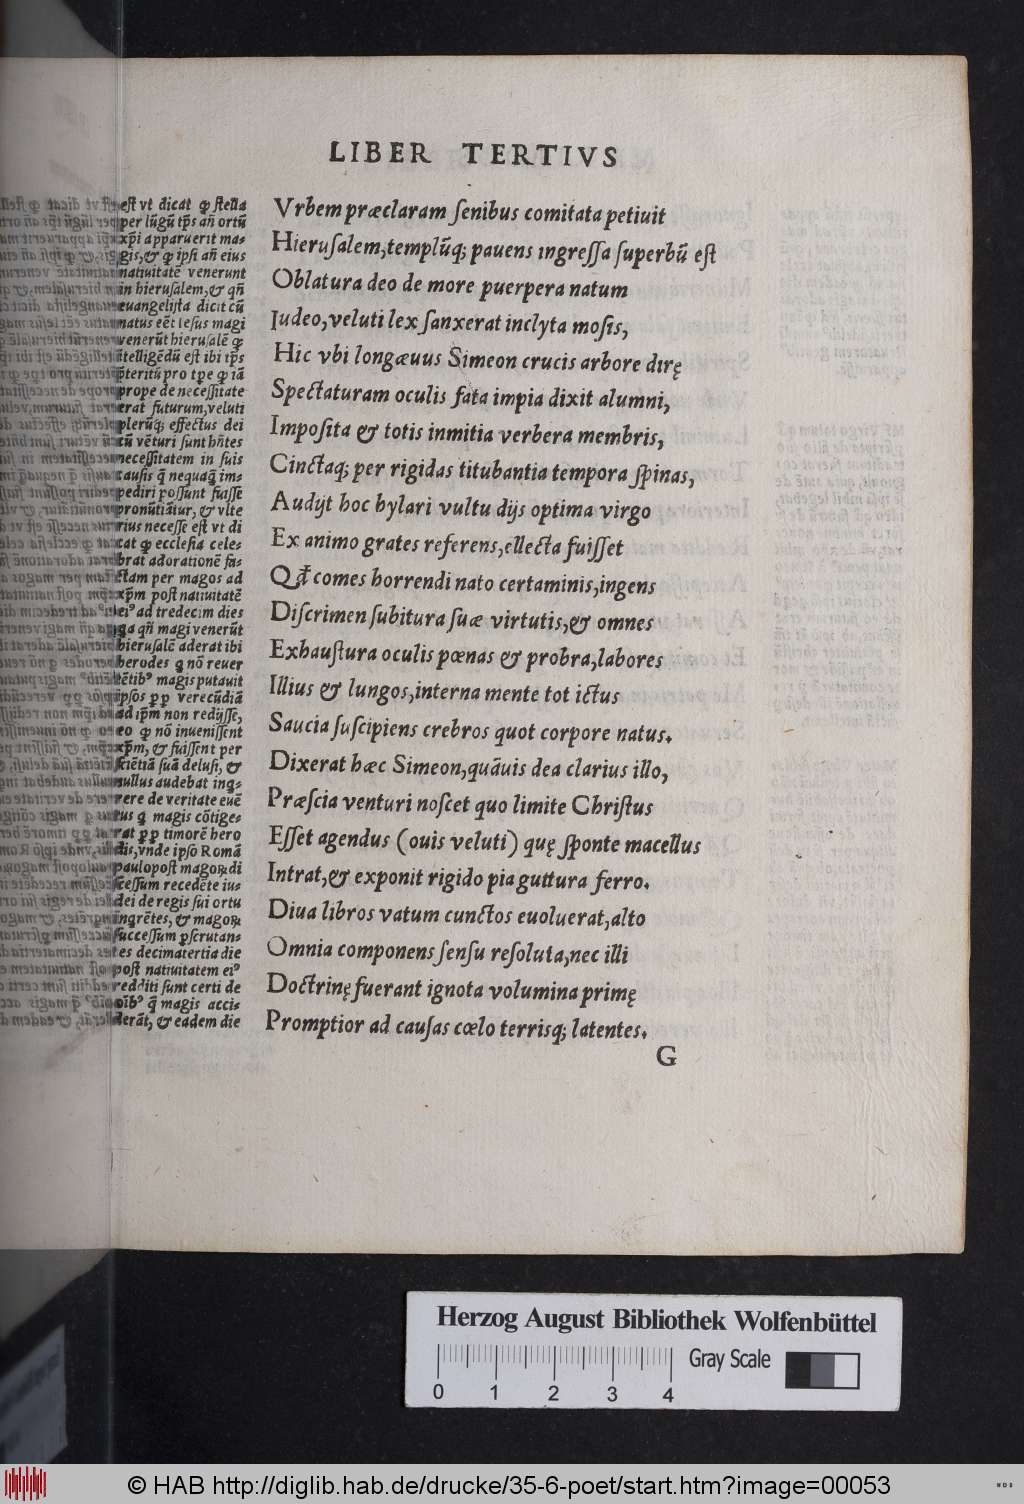 LIBER TERTIVS
Vrbem præclaram ſenibus comitata petiuit
Hieruſalem,templũq; pauens ingreſſa ſuperbũ eſt
Oblatura deo de more puerpera natum
Iudeo,veluti lex ſanxerat inclyta moſis,
Hic vbi longæuus Simeon crucis arbore dirę
Spectaturam oculis fata impia dixit alumni,
Impoſita & totis inmitia verbera membris,
Cinctaq; per rigidas titubantia tempora ſpinas,
Audijt hoc hylari vultu dijs optima virgo
Ex animo grates referens,ellecta fuiſſet
Qđ comes horrendi nato certaminis,ingens
Diſcrimen ſubitura ſuæ virtutis,& omnes
Exhauſtura oculis pœnas & probra,labores
Illius & lungos,interna mente tot ictus
Saucia ſuſcipiens crebros quot corpore natus.
Dixerat hæc Simeon,quãuis dea clarius illo,
Præſcia venturi noſcet quo limite Chriſtus
Eſſet agendus (ouis veluti) quę ſponte macellus
Intrat,& exponit rigido pia guttura ferro.
Diua libros vatum cunctos euoluerat,alto
Omnia componens ſenſu reſoluta,nec illi
Doctrinę fuerant ignota volumina primę
Promptior ad cauſas cœlo terrisq; latentes.
G
eſt vt dicat ꝙ ſtella
per lũgũ tp̃s añ ortũ
xp̃i apparuerit ma-
gis,& ꝙ ipſi añ eius
natiuitatẽ venerunt
in hieruſalem,& qñ
euangeliſta dicit cũ
natus eẽt Ieſus magi
venerũt hieruſalẽ ꝙ
ĩtelligẽdũ eſt ibi tp̃s
p̃teritũ pro tp̃e ꝙ iã
prope de neceſſitate
erat futurum,veluti
plerũq; effectus dei
cũ vẽturi ſunt hñtes
neceſſitatem in ſuis
cauſis q̃ nequaq̃ im-
pediri poſſunt fuiſſe
pronũtiãtur,& vlte
rius neceſſe eſt vt di
cat ꝙ eccleſia cele-
brat adorationẽ fa-
ctam per magos ad
xp̃m poſt natiuitatẽ
eiꝰ ad tredecim dies
qa qñ magi venerũt
hieruſalẽ aderat ibi
herodes q nõ reuer
tẽtibꝰ magis putauit
ipſos ꝓꝑ verecũdiã
ad ip̃m non redijſſe,
eo ꝙ nõ inueniſſent
xp̃m, & fuiſſent per
ſciẽtiã ſuã deluſi, &
nullus audebat inq-
rere de veritate euẽ
tus q magis cõtige-
rat ꝓꝑ timorẽ hero
dis,vnde ipſo Romã
paulopoſt magoꝝ di
ſceſſum recedẽte iu-
dei de regis ſui ortu
inqrẽtes, & magoꝝ
ſucceſſum ꝑſcrutan-
tes decimatertia die
poſt natiuitatem eiꝰ
redditi ſunt certi de
oĩbꝰ q̃ magis acci-
derãt, & eadem die
Herzog August Bibliothek Wolfenbüttel
Gray Scale
0 1 2 3 4
© HAB http://diglib.hab.de/drucke/35-6-poet/start.htm?image=00053